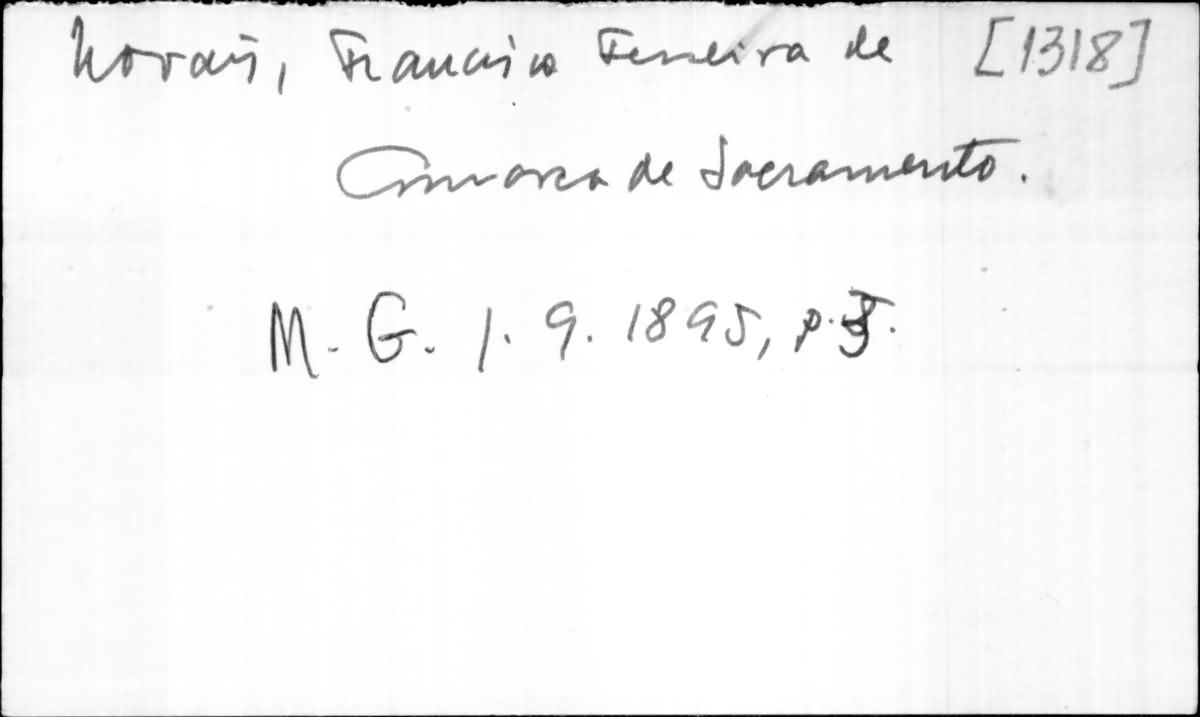 Novais, Francisco Ferreira de [1318]
Comarca de Sacramento.
M. G. 1. 9. 1895, p.